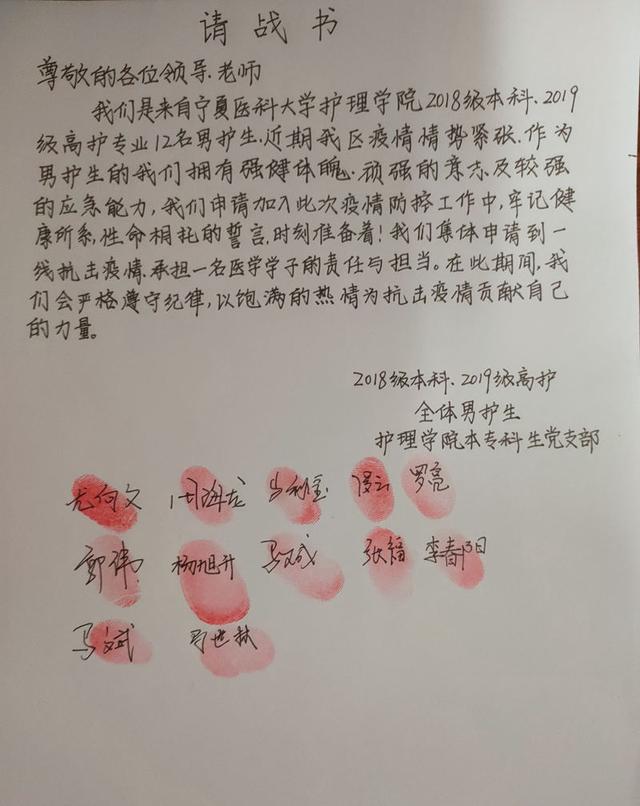 请战书
尊敬的各位领导、老师
我们是来自宁夏医科大学护理学院2018级本科、2019
级高护专业12名男护生,近期我区疫情情势紧张,作为
男护生的我们拥有强健体魄、顽强的意志及较强
的应急能力,我们申请加入此次疫情防控工作中,牢记健
康所系,性命相托的誓言,时刻准备着!我们集体申请到一
线抗击疫情、承担一名医学学子的责任与担当。在此期间,我
们会严格遵守纪律,以饱满的热情为抗击疫情贡献自己
的力量。
2018级本科、2019级高护
全体男护生
护理学院本专科生党支部
尤向文 罗亮
郭伟 杨旭升 马斌 张福 李春阳
马文斌 马世林